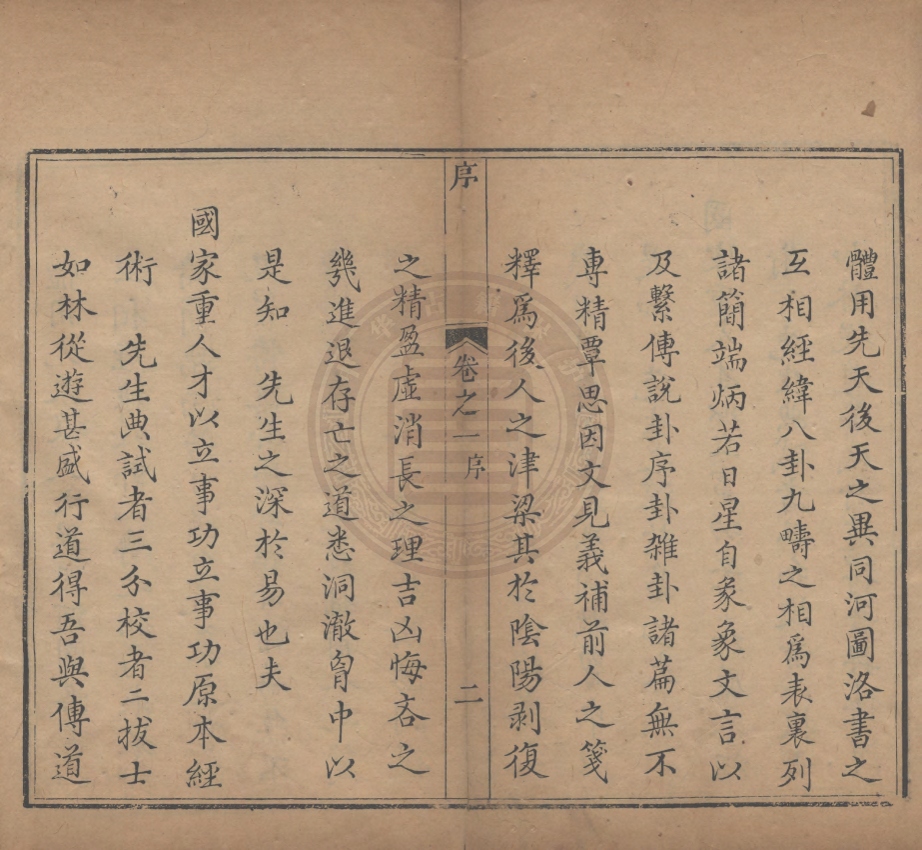 體用先天後天之異同河圖洛書之
互相經緯八卦九疇之相爲表裏列
諸簡端炳若日星自彖象文言以
及繫傳說卦序卦雜卦諸篇無不
專精覃思因文見義補前人之箋
釋爲後人之津梁其於陰陽剥復
序
卷之一序
二
之精盈虛消長之理吉凶悔吝之
幾進退存亡之道悉洞澈胷中以
是知　先生之深於易也夫
國家重人才以立事功立事功原本經
術　先生典試者三分校者二拔士
如林從遊甚盛行道得吾與傳道